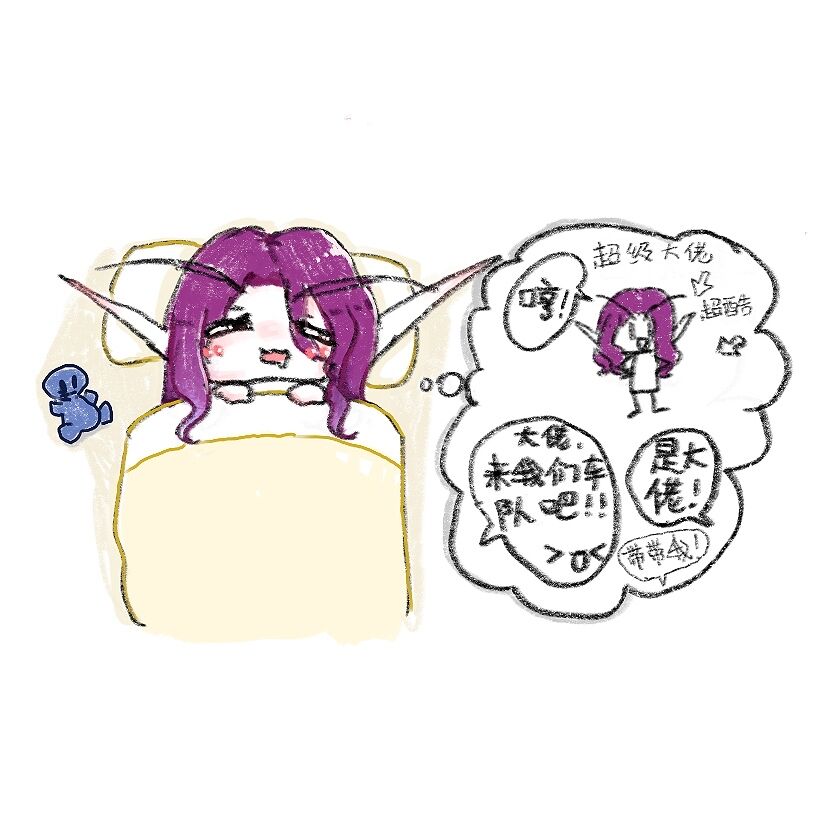 超级大佬
哼!!
超酷
大佬,
来我们车
队吧!!
>o<
是大
佬!
带带我!